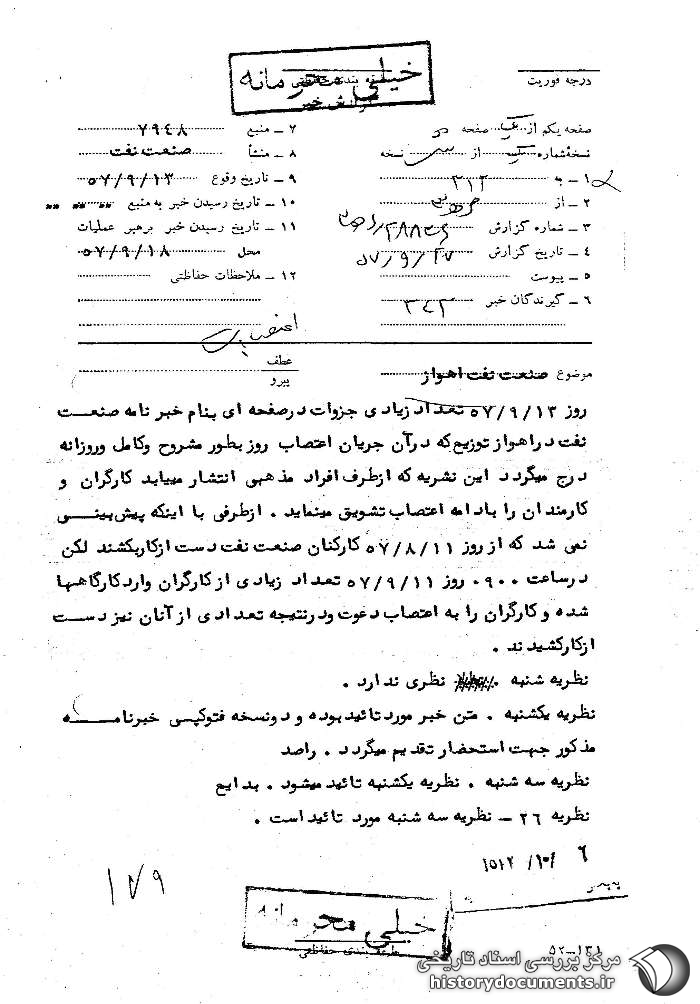 درجه فوریت
خیلی محرمانه
طبقه بندی حفاظتی
گزارش خبر
صفحه یکم از یک صفحه
نسخهٔ شماره یک از سی نسخه
۱ – به ۳۱۲
۲ – از
۳ – شماره گزارش
۴ – تاریخ گزارش ۵۷/۹/۲۷
۵ – پیوست
۶ – گیرندگان خبر ۳۴۲
۷ – منبع ۷۹۴۸
۸ – منشأ صنعت نفت
۹ – تاریخ وقوع ۵۷/۹/۱۳
۱۰ – تاریخ رسیدن خبر به منبع " " "
۱۱ – تاریخ رسیدن خبر برهبر عملیات
محل ۵۷/۹/۱۸
۱۲ – ملاحظات حفاظتی
موضوع صنعت نفت اهواز
عطف
پیرو
روز ۵۷/۹/۱۳ تعداد زیادی جزوات درصفحه ای بنام خبر نامه صنعت
نفت دراهواز توزیع که درآن جریان اعتصاب روز بطور مشروح وکامل وروزانه
درج میگردد این نشریه که ازطرف افراد مذهبی انتشار مییابد کارگران و
کارمندان را بادامه اعتصاب تشویق مینماید . ازطرفی با اینکه پیش بینی
نمی شد که از روز ۵۷/۸/۱۱ کارکنان صنعت نفت دست ازکاربکشند لکن
درساعت ۰۹۰۰ روز ۵۷/۹/۱۱ تعداد زیادی از کارگران وارد کارگاهها
شده و کارگران را به اعتصاب دعوت ودرنتیجه تعدادی از آنان نیز دست
ازکارکشیدند .
نظریه شنبه . نظری ندارد .
نظریه یکشنبه . متن خبر مورد تائید بوده و دونسخه فتوکپی خبرنامه
مذکور جهت استحضار تقدیم میگردد . راصد
نظریه سه شنبه . نظریه یکشنبه تائید میشود . بدایع
نظریه ۲۶ – نظریه سه شنبه مورد تائید است .
۱۷۹
خیلی محرمانه
طبقه بندی حفاظتی
۵۲–۱۳۱
مرکز بررسی اسناد تاریخی
historydocuments.ir